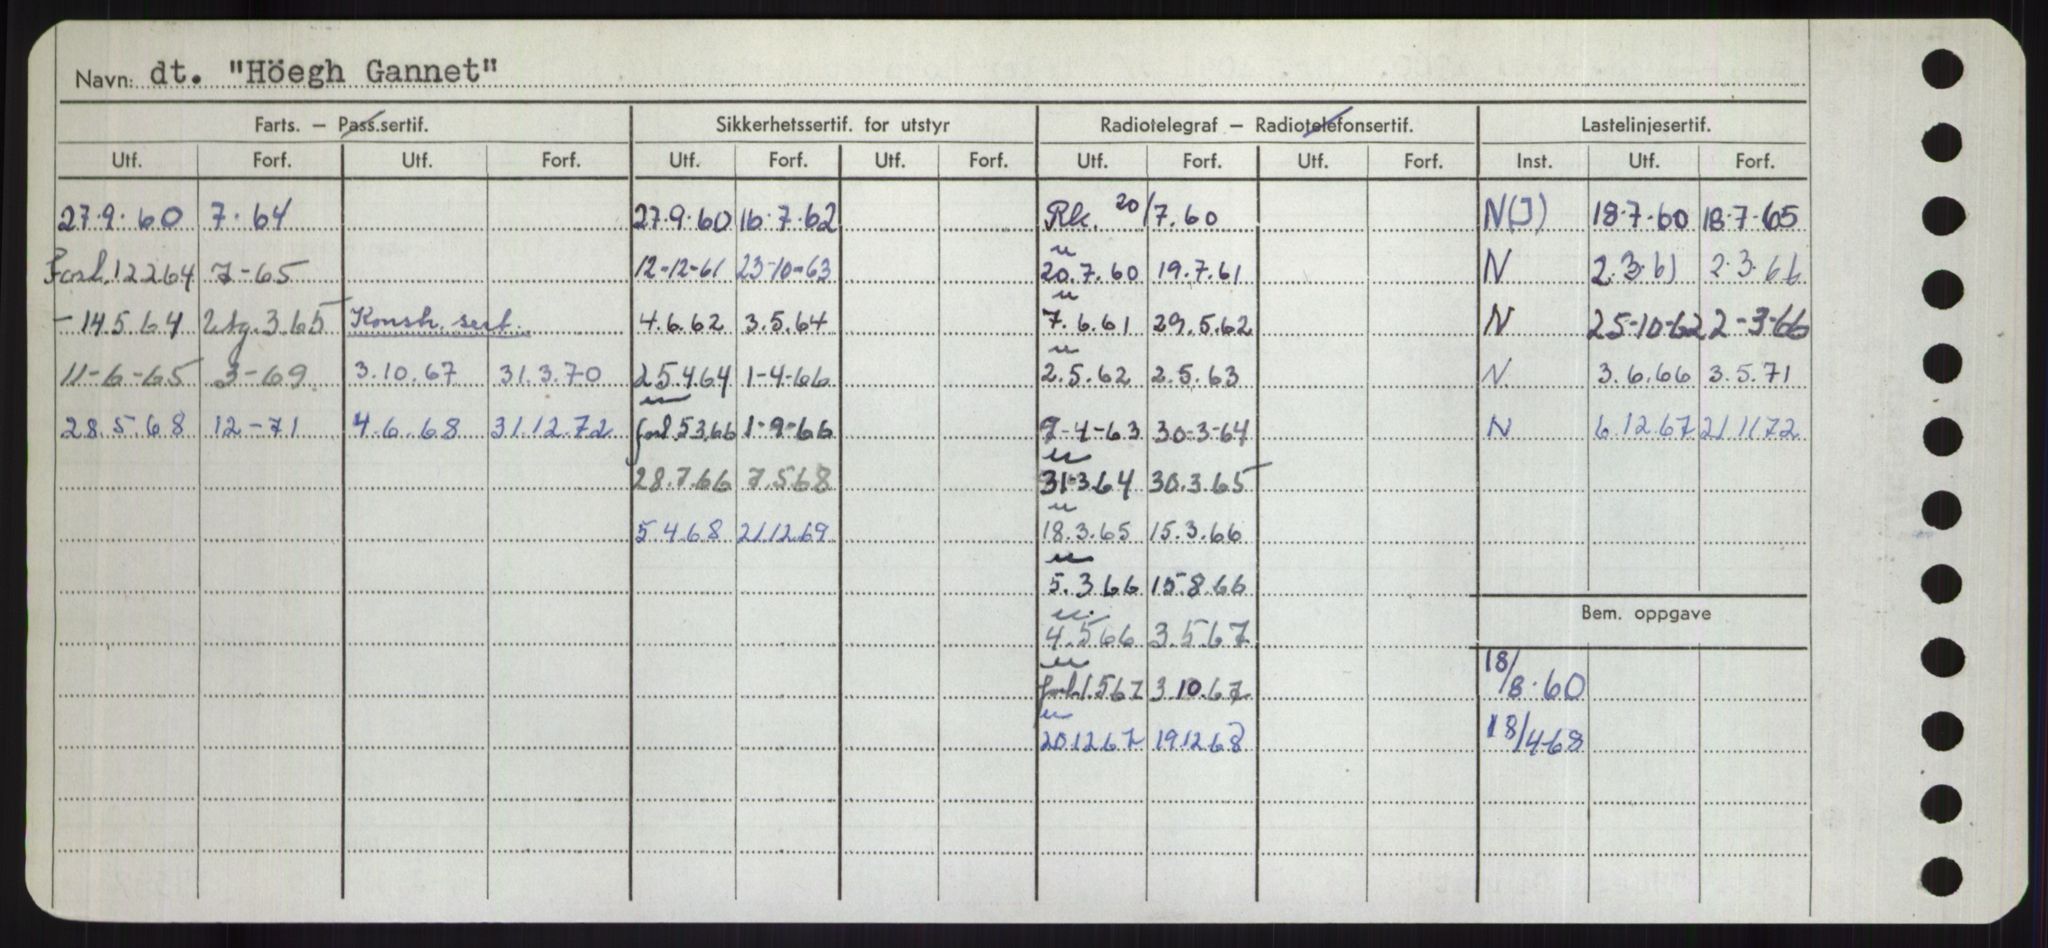 Navn: dt. "Höegh Gannet"
Farts. – Pass.sertif. Sikkerhetssertif. for utstyr Radiotelegraf – Radiotelefonsertif. Lastelinjesertif.
Utf. Forf. Utf. Forf. Utf. Forf. Utf. Forf. Utf. Forf. Utf. Forf. Inst. Utf. Forf.
27.9.60 7.64 27.9.60 16.7.62 Rk. 20/7.60 N(J) 18.7.60 18.7.65
Forl. 12264 7-65 12-12-61 23-10-63 20.7.60 19.7.61 N 2.3.61 2.3.66
- 14564 Utg. 365 Konstr. sert. 4.6.62 3.5.64 7.6.61 29.5.62 N 25-10-62 2-3-66
11-6-65 3-69 3.10.67 31.3.70 25.4.64 1-4-66 2.5.62 2.5.63 N 3.6.66 3.5.71
28.5.68 12-71 4.6.68 31.12.72 forl. 5366 1-9-66 9-4-63 30-3-64 N 6.12.67 21.11.72
28.7.66 7.5.68 31-3.64 30.3.65
5.4.68 21.12.69 18.3.65 15.3.66
5.3.66 15.8.66
Bem. oppgave
4.5.66 3.5.67
forl. 1.567 3.10.67 18/8.60
20.12.67 19.12.68 18/4-68